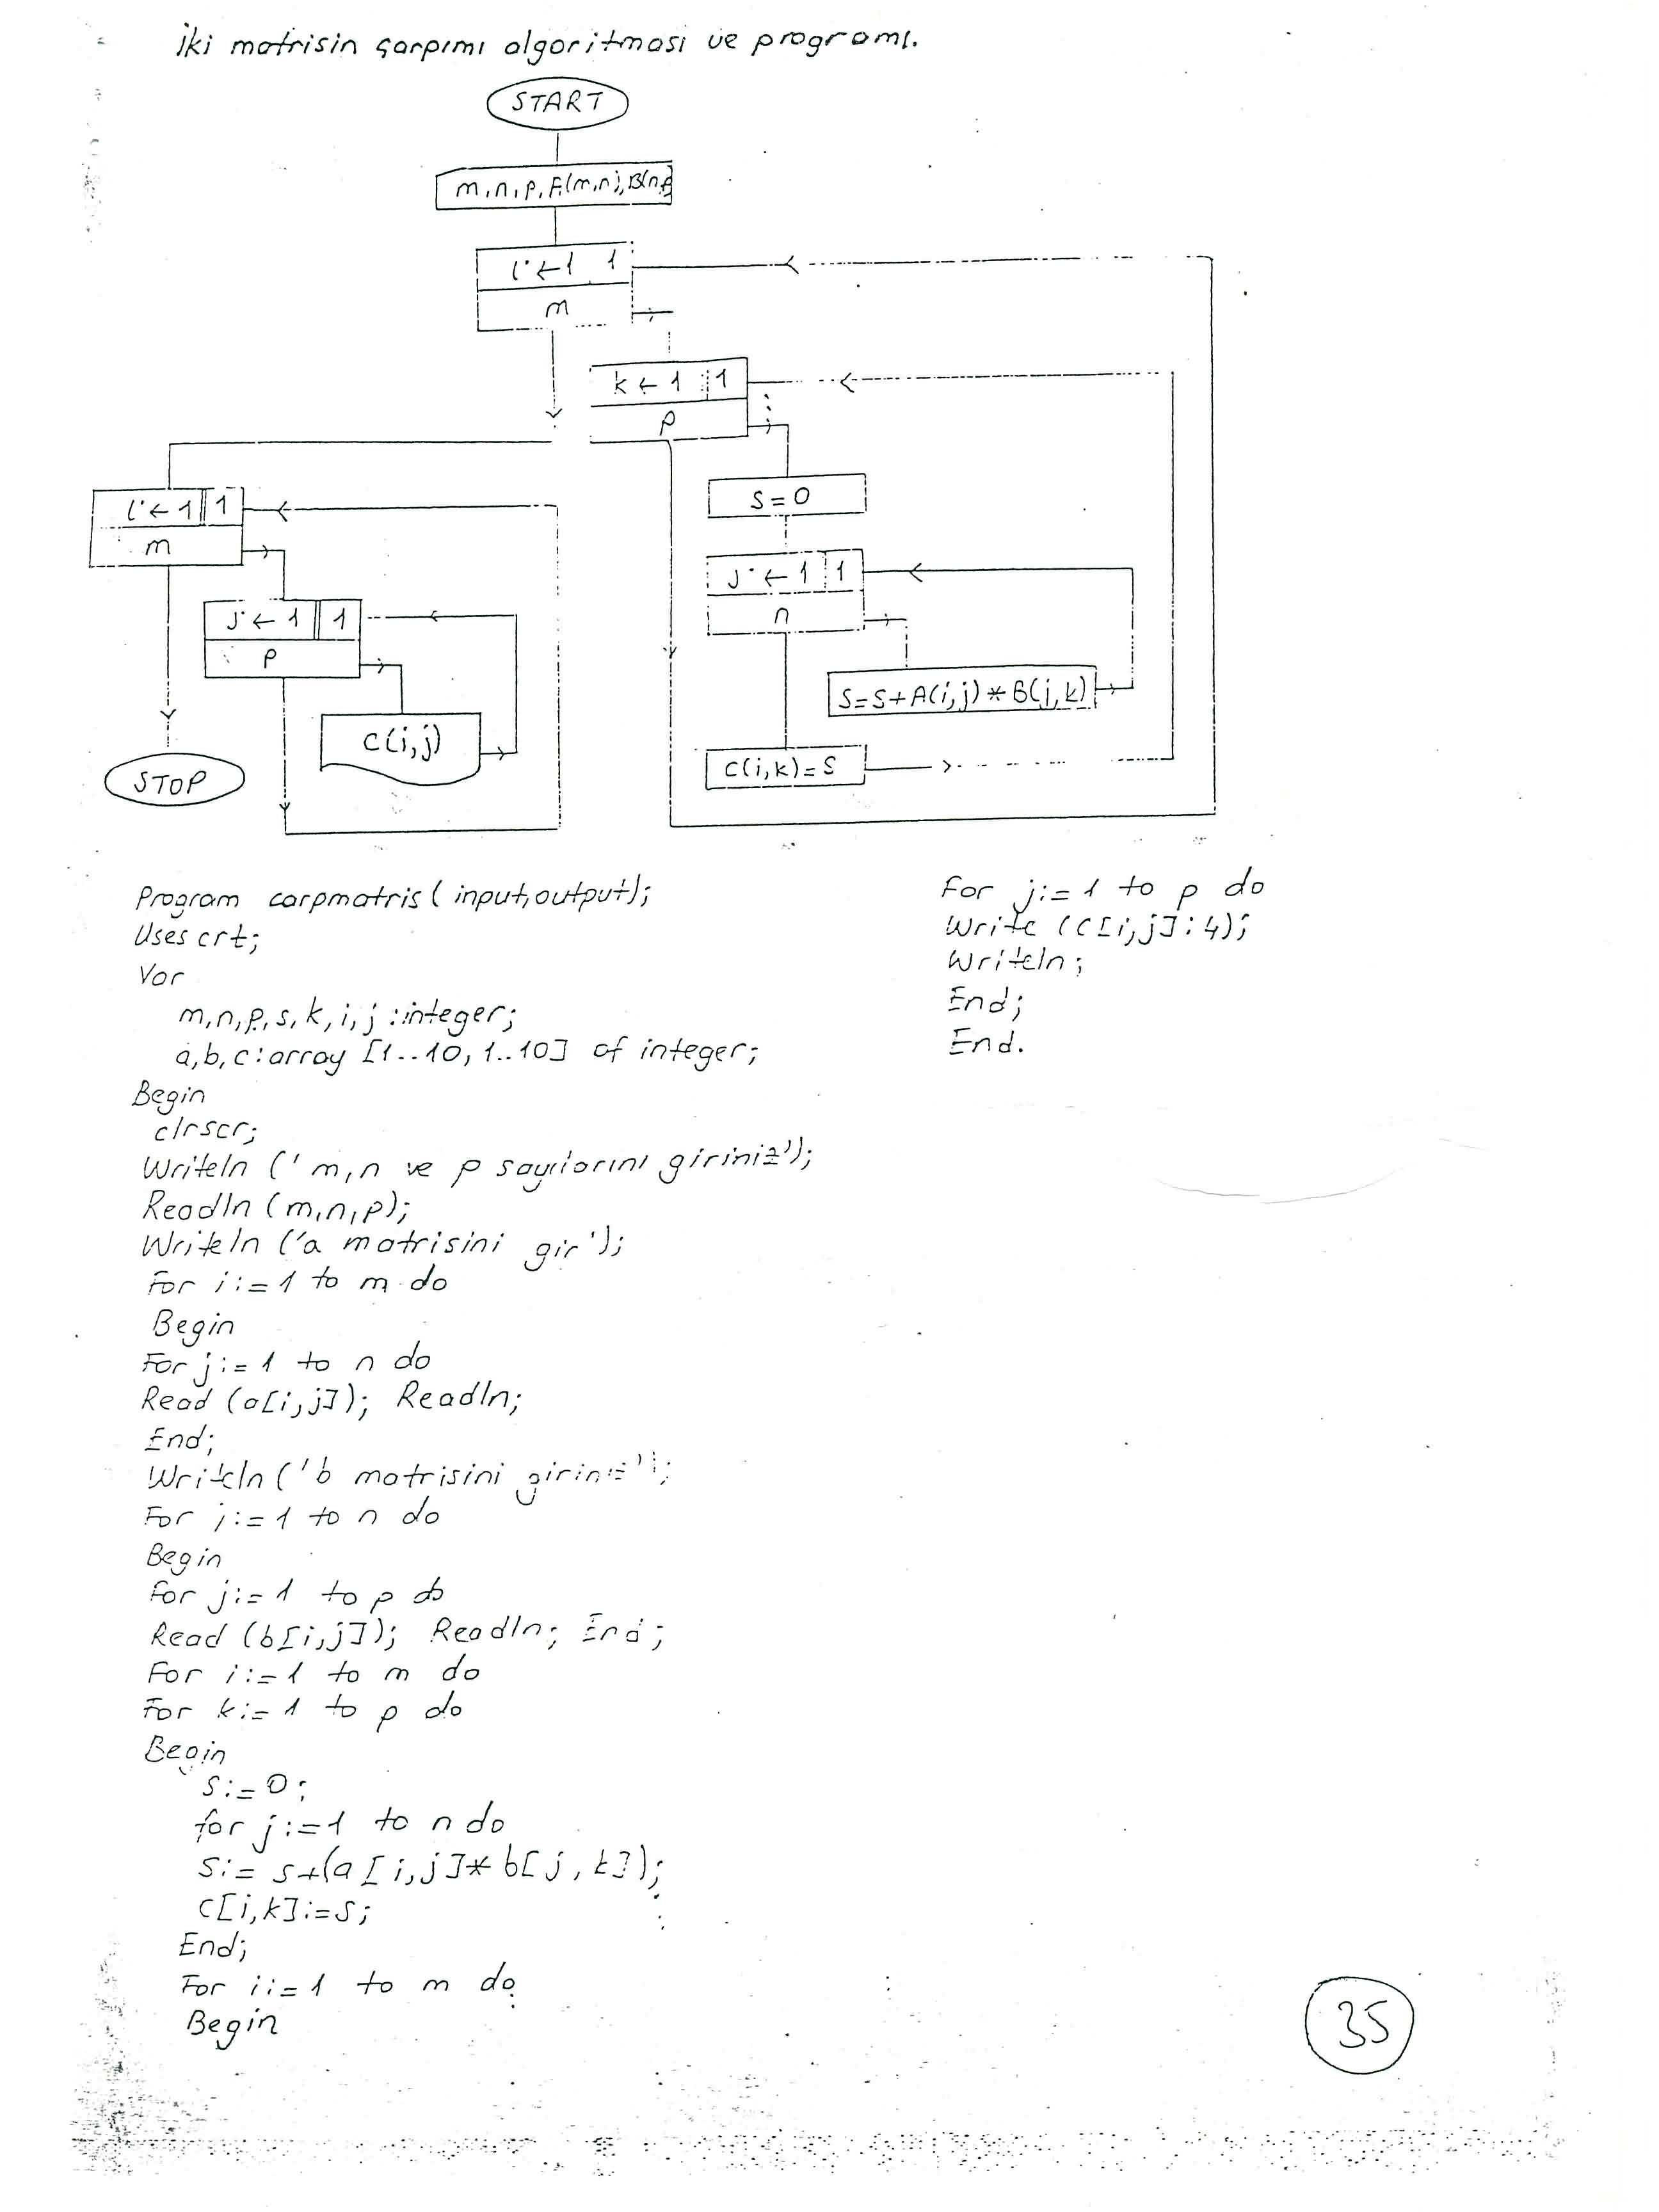 İki matrisin çarpımı algoritması ve programı.
START
m,n,p,A(m,n),B(n,p)
i←1 1
m
k←1 1
p
i←1 1
m
S=0
j←1 1
n
j←1 1
p
S=S+A(i,j)*B(j,k)
C(i,j)
C(i,k)=S
STOP
Program carpmatris(input,output);
Uses crt;
Var
m,n,p,s,k,i,j:integer;
a,b,c:array [1..10,1..10] of integer;
Begin
clrscr;
Writeln ('m,n ve p sayılarını giriniz');
Readln (m,n,p);
Writeln ('a matrisini gir');
For i:=1 to m do
Begin
For j:=1 to n do
Read (a[i,j]); Readln;
End;
Writeln ('b matrisini giriniz');
For i:=1 to n do
Begin
For j:=1 to p do
Read (b[i,j]); Readln; End;
For i:=1 to m do
For k:=1 to p do
Begin
S:=0;
for j:=1 to n do
S:= s+(a[i,j]*b[j,k]);
c[i,k]:=s;
End;
For i:=1 to m do
Begin
For j:=1 to p do
Write (c[i,j]:4);
Writeln;
End;
End.
35